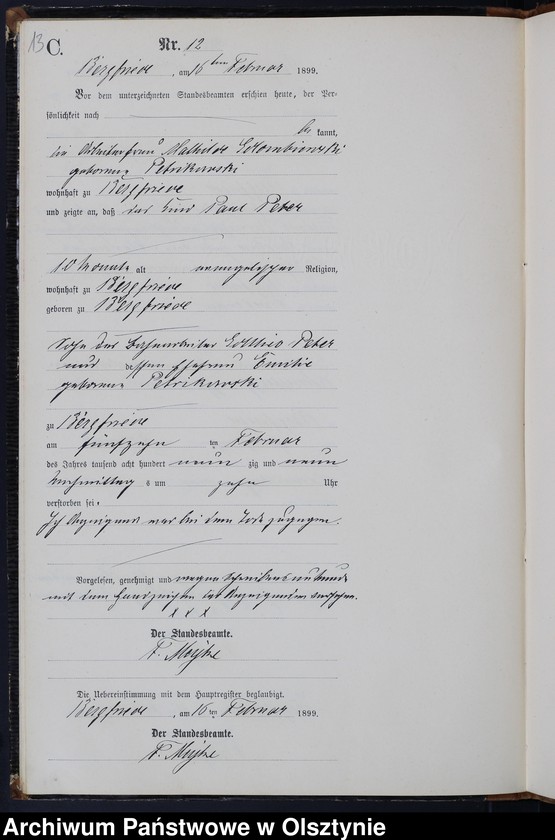 13 C.
Nr. 12
Bergfriede, am 16ten Februar 1899.
Vor dem unterzeichneten Standesbeamten erschien heute, der Per-
sönlichkeit nach
be kannt,
die Arbeiterfrau Mathilde
geborene Petrikowski
wohnhaft zu Bergfriede
und zeigte an, daß das Kind Paul Peter
10 Monate alt evangelischer Religion,
wohnhaft zu Bergfriede
geboren zu Bergfriede
Sohn des Bahnarbeiter Gottlieb Peter
und dessen Ehefrau Emilie
geborene Petrikowski
zu Bergfriede
am fünfzehn ten Februar
des Jahres tausend acht hundert neun zig und neun
Nachmittag s um zehn Uhr
verstorben sei.
Die Anzeigende war bei dem Tode zugegen.
Vorgelesen, genehmigt und wegen Schreibensunkunde
mit dem Handzeichen der Anzeigenden versehen.
x x x
Der Standesbeamte.
Die Uebereinstimmung mit dem Hauptregister beglaubigt.
Bergfriede, am 16ten Februar 1899.
Der Standesbeamte.
Archiwum Państwowe w Olsztynie